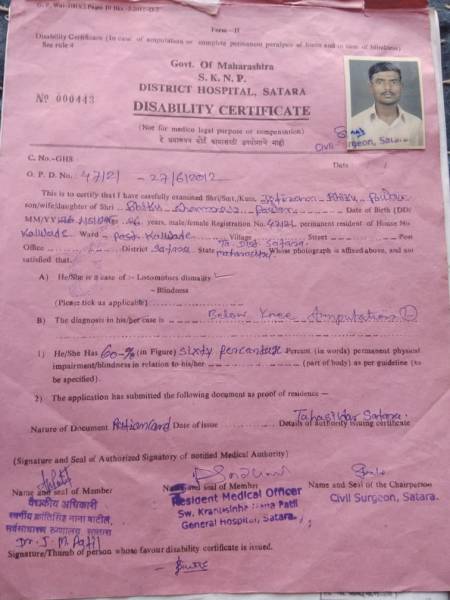 Form-II
Disability Certificate (In case of amputation or complete permanent paralysis of limbs and in case of blindness)
See rule 4
Govt. Of Maharashtra
S. K. N. P.
DISTRICT HOSPITAL, SATARA
Nº 000443
DISABILITY CERTIFICATE
(Not for medico legal purpose or compensation)
Civil Surgeon, Satara
C. No.-GHS
Date /
O. P. D. No. 47121 - 27/6/2012
This is to certify that I have carefully examined Shri/Smt./Kum.
son/wife/daughter of Shri Date of Birth (DD/
MM/YY years, male/female Registration No. 47121 permanent resident of House No
Kallwade Ward - Post Kallwade Village Street Post
Office District Satara State Maharashtra Whose photograph is affixed above, and not
To. Dist Satara.
satisfied that.
A) He/She is a case of :- Locomotors dismality
- Blindness
(Please tick as applicable)
B) The diagnosis in his/per case is Below Knee Amputation
1) He/She Has 60-% (in Figure) Sixty percentage Percent (in words) permanent physical
impairment/blindness in relation to his/her (part of body) as per guideline (to
be specified).
2) The application has submitted the following document as proof of residence —
Tahasildar Satara.
Nature of Document Rationcard Date of issue Details of authority issuing certificate
(Signature and Seal of Authorized Signatory of notified Medical Authority)
Name and seal of Member
Name and seal of Member
Name and Seal of the Chairperson
वैद्यकीय अधिकारी
स्वर्गीय क्रांतिसिंह नाना पाटील,
सर्वसाधारण रुग्णालय, सातारा
Dr. J. M. Patil
Resident Medical Officer
Sw. Krantisinha Nana Patil
General Hospital, Satara.
Civil Surgeon, Satara.
Signature/Thumb of person whose favour disability certificate is issued.